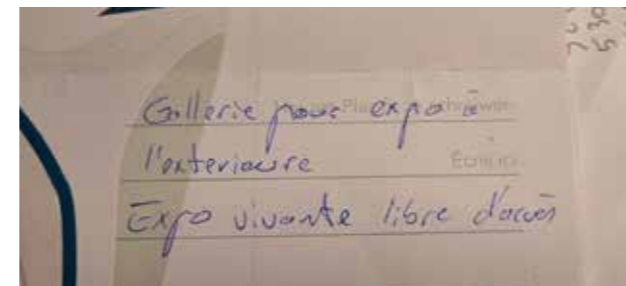 Gallerie pour expo à
l'exterieure
Expo vivante libre d'accès